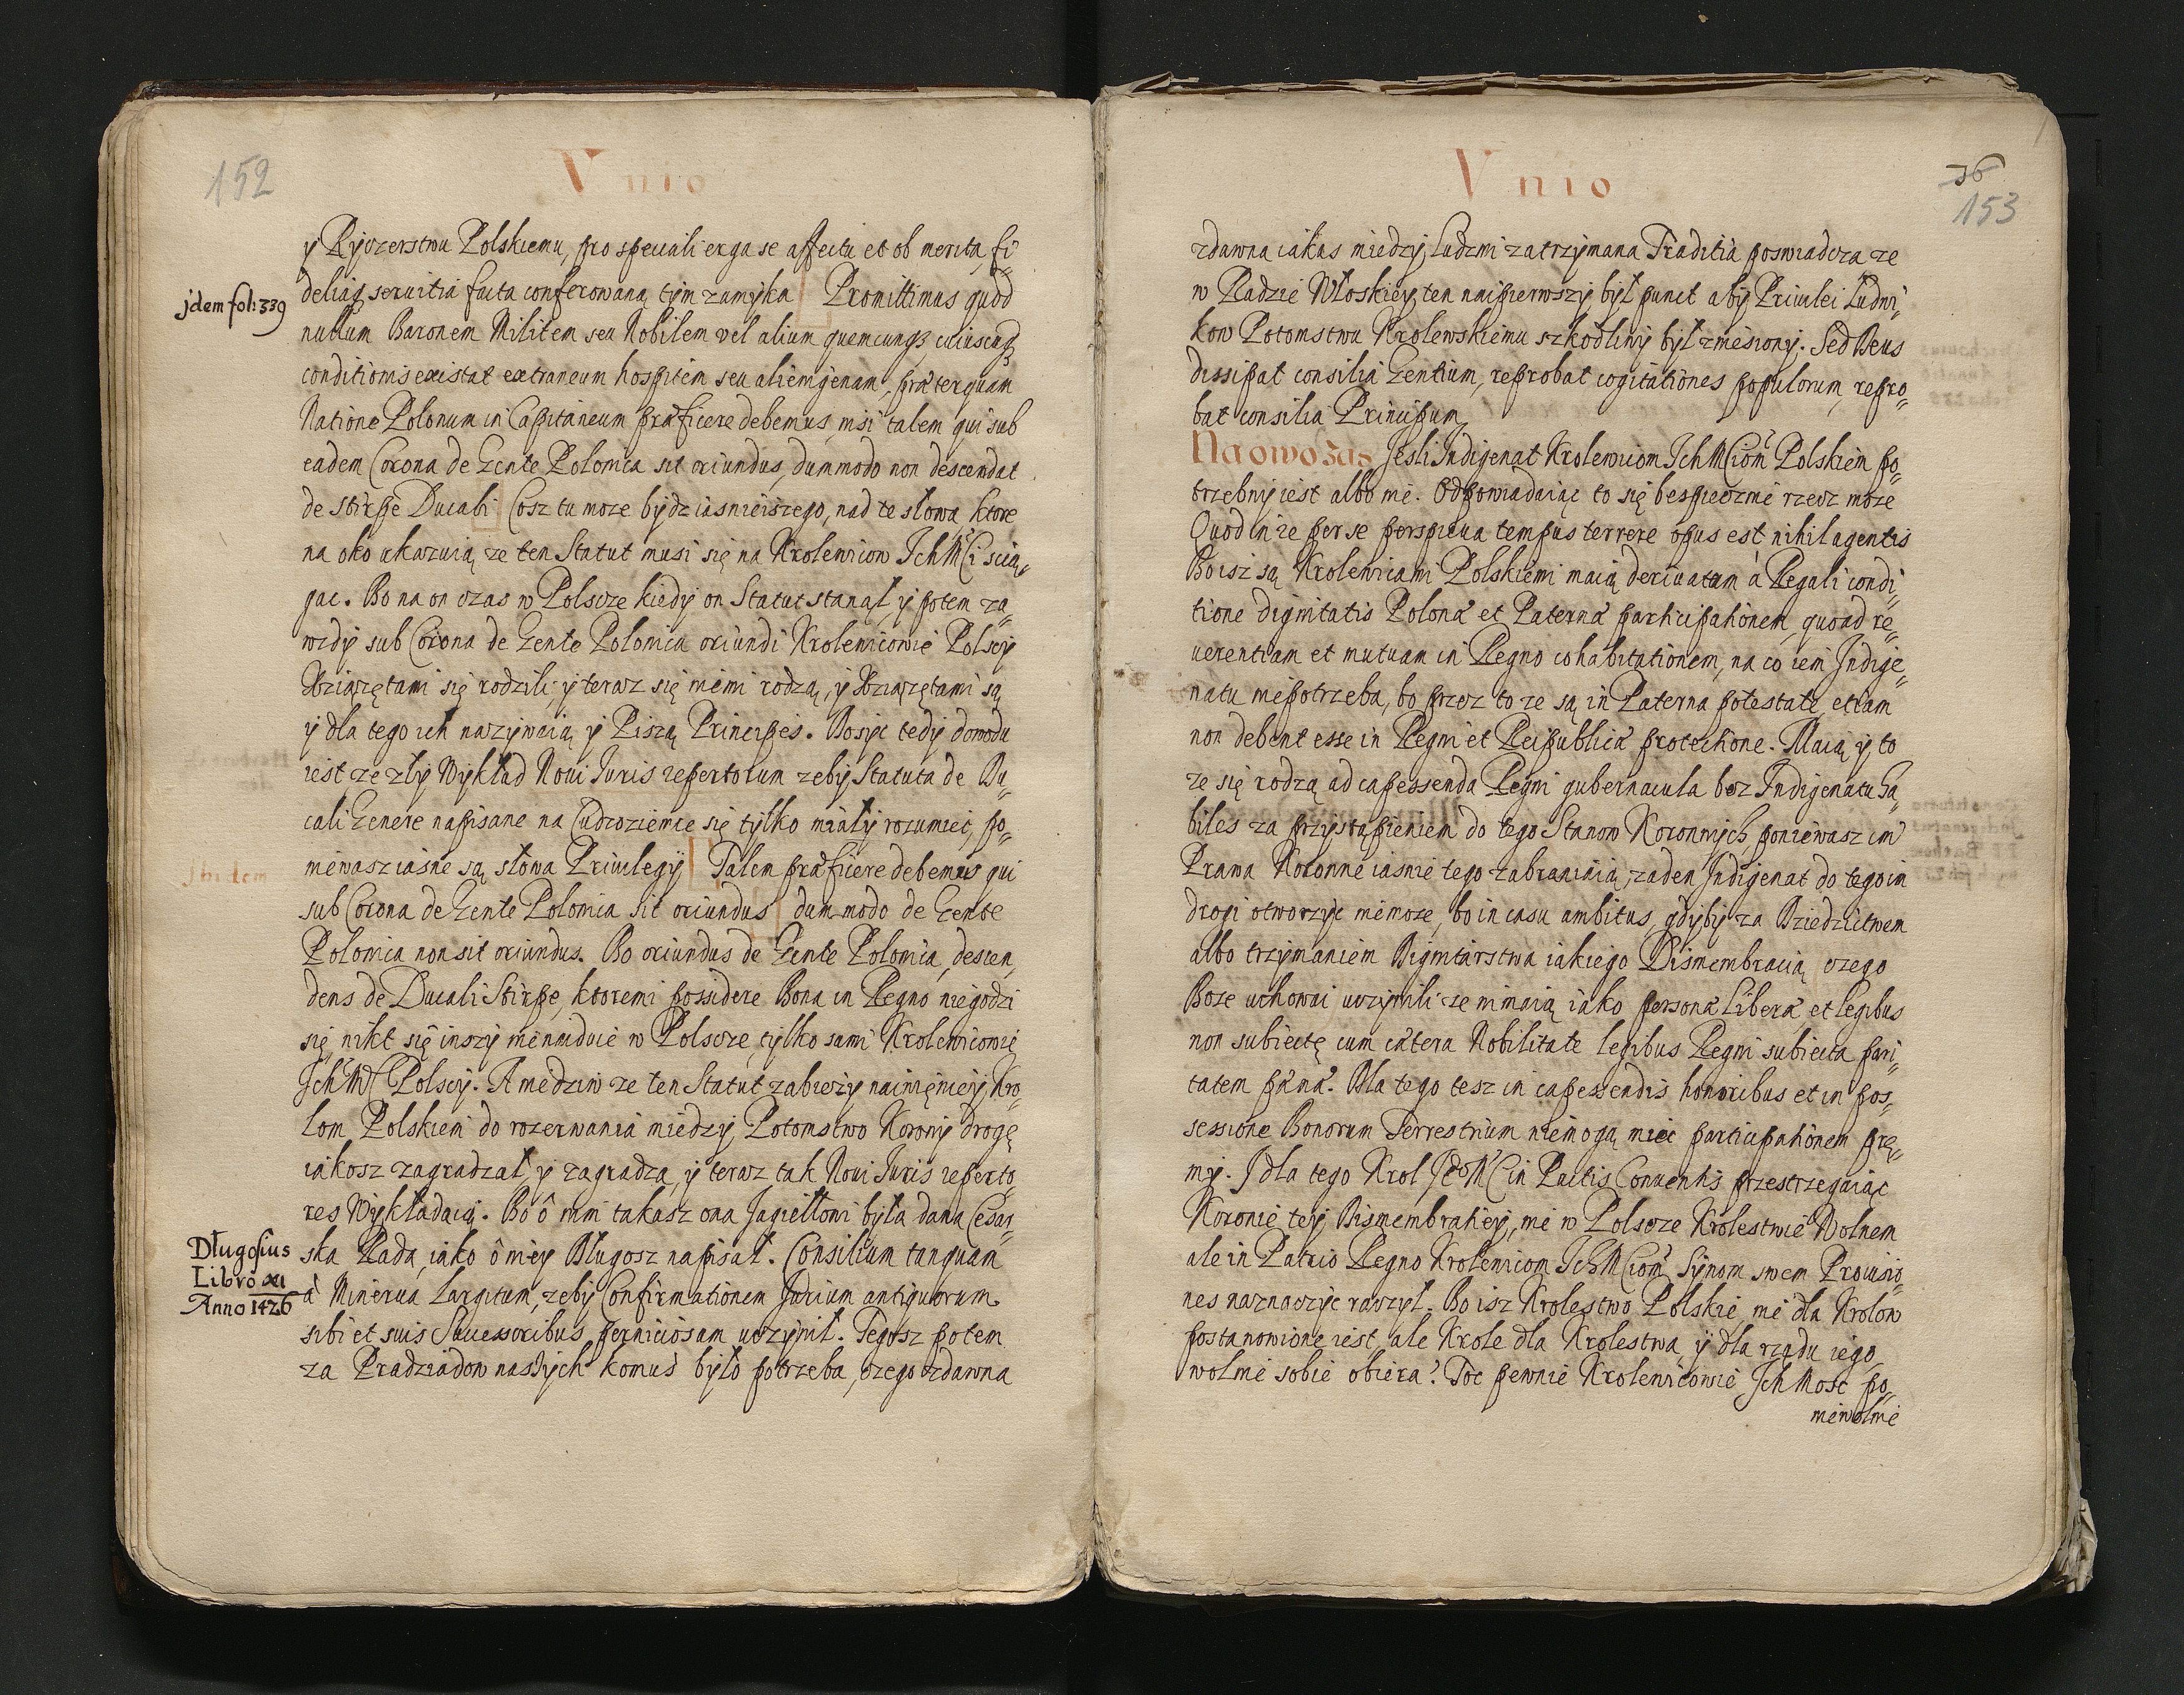 152
Vnio
y Ryczerstwu Polskiemu, pro speciali erga se affectu et ob merita, fi„
deliaq; seruitia facta conferowaną tym zamyka Promittimus quod
Jdem fol: 339
nullum Baronem Militem seu Nobilem vel alium quemcunq; cuiuscuq;
conditionis existat extraneum hospitem seu alienigenam, præterquam
Natione Polonum in Capitaneum præficere debemus, nisi talem qui sub
eadem Corona de Gente Polonica sit oriundus, dummodo non descendat
de stirpe Ducali Cosz tu moze bydz iasnieiszego, nad te słowa, ktore
na oko ukazuią ze ten Statut musi się na Krolewicow IchMCi scią„
gac. Bo na on czas w Polscze kiedy on Statut stanął, y potem za„
wzdy sub Corona de Gente Polonica oriundi Krolewicowie Polscy
Xziązętami się rodzili, y teraz się niemi rodzą, y Xziązętami są
y dla tego ich nazywaią y Piszą Principes. Dosyc tedy dowodu
iest ze zły Wykład Noui Iuris repertorum zeby Statuta de Du„
cali Genere napisane na Cudzoziemce się tylko miały rozumiec, po„
niewasz iasne są słowa Priuilegij Talem præficere debemus qui
Ibidem
sub Corona de Gente Polonica sit oriundus dummodo de Gente
Polonica non sit oriundus. Bo oriundus de Gente Polonica, descen„
dens de Ducali Stirpe, ktoremi possidere Bona in Regno niegodzi
się, nikt się inszy nienaiduie w Polscze, tylko sami Krolewicowie
IchMC Polscy. A niedziw ze ten Statut zabiezy naimnieiey Kro„
lom Polskiem do rozerwania miedzy Potomstwo Korony drogę
iakosz zagradzał, y zagradza, y teraz tak Noui Iuris reperto„
res Wykładaią. Bo ô nim takasz ona Jagiełłowi była dana Cesar„
ska Rada, iako ô niey Długosz napisał. Consilium tanquam
Długosius
Libro XI
Anno 1426
à Minerua Largitum, zeby Confirmationem Jurium antiquorum
sibi et suis Successoribus perniciosam uczynił. Tegosz potem
za Pradziadow naszych komus było potrzeba, czego zdawna
Vnio
36
153
zdawna iakas miedzy Ludzmi zatrzymana Traditia poswiadcza ze
w Radzie Włoskiey ten naipierwszy był punct aby Priuilei Ludwi„
kow Potomstwu Krolewskiemu szkodliwy był zniesiony. Sed Deus
dissipat consilia Gentium, reprobat cogitationes populorum, repro„
bat consilia Principum.
Naowo zas Jesli Indigenat Krolewicom IchMCiom Polskiem po„
trzebny iest albo nie. Odpowiadaiąc to się bespiecznie rzecz moze
Quod in re per se perspicua tempus terrere opus est nihil agentis
Bo isz są Krolewicami Polskiemi maią deriuatam à Regali condi„
tione dignitatis Polonæ et Paternæ participationem, quoad re„
uerentiam et mutuam in Regno cohabitationem, na co iem Indige„
natu niepotrzeba, bo przez to ze są in Paterna potestate, etiam
non debent esse in Regni et Reipublicæ protectione. Maią y to
ze się rodzą ad capessenda Regni gubernacula bez Indigenatu Ha„
biles za przystąpieniem do tego Stanow Koronnych, poniewasz im
Prawa Koronne iasnie tego zabraniaią, zaden Indigenat do tego im
drogi otworzyc niemoze, bo in casu ambitus, gdyby za Dziedzictwem
albo trzymaniem Dignitarstwa iakiego Dismembracią czego
Boze uchowai uczynili ze nimaią iako personæ Liberæ, et legibus
non subiectę cum cætera Nobilitate legibus Regni subiecta pari„
tatem pænæ. Dla tego tesz in capessendis honoribus et in pos„
sessione Bonorum Terrestrium niemogą miec participationem prę„
my. I dla tego Krol JeoMC in Pactis Conuentis przestrzegaiąc
Koronie tey Dismembratiey, nie w Polscze Krolestwie Wolnem
ale in Patrio Regno Krolewicom IchMCiom Synom swem Prouisio„
nes naznaczyc raczył. Bo isz Krolestwo Polskie, nie dla Krolow
postanowione iest, ale Krole dla Krolestwa, y dla rządu iego
wolnie sobie obiera? Toc pewnie Krolewicowie IchMosc po„
niewolnie